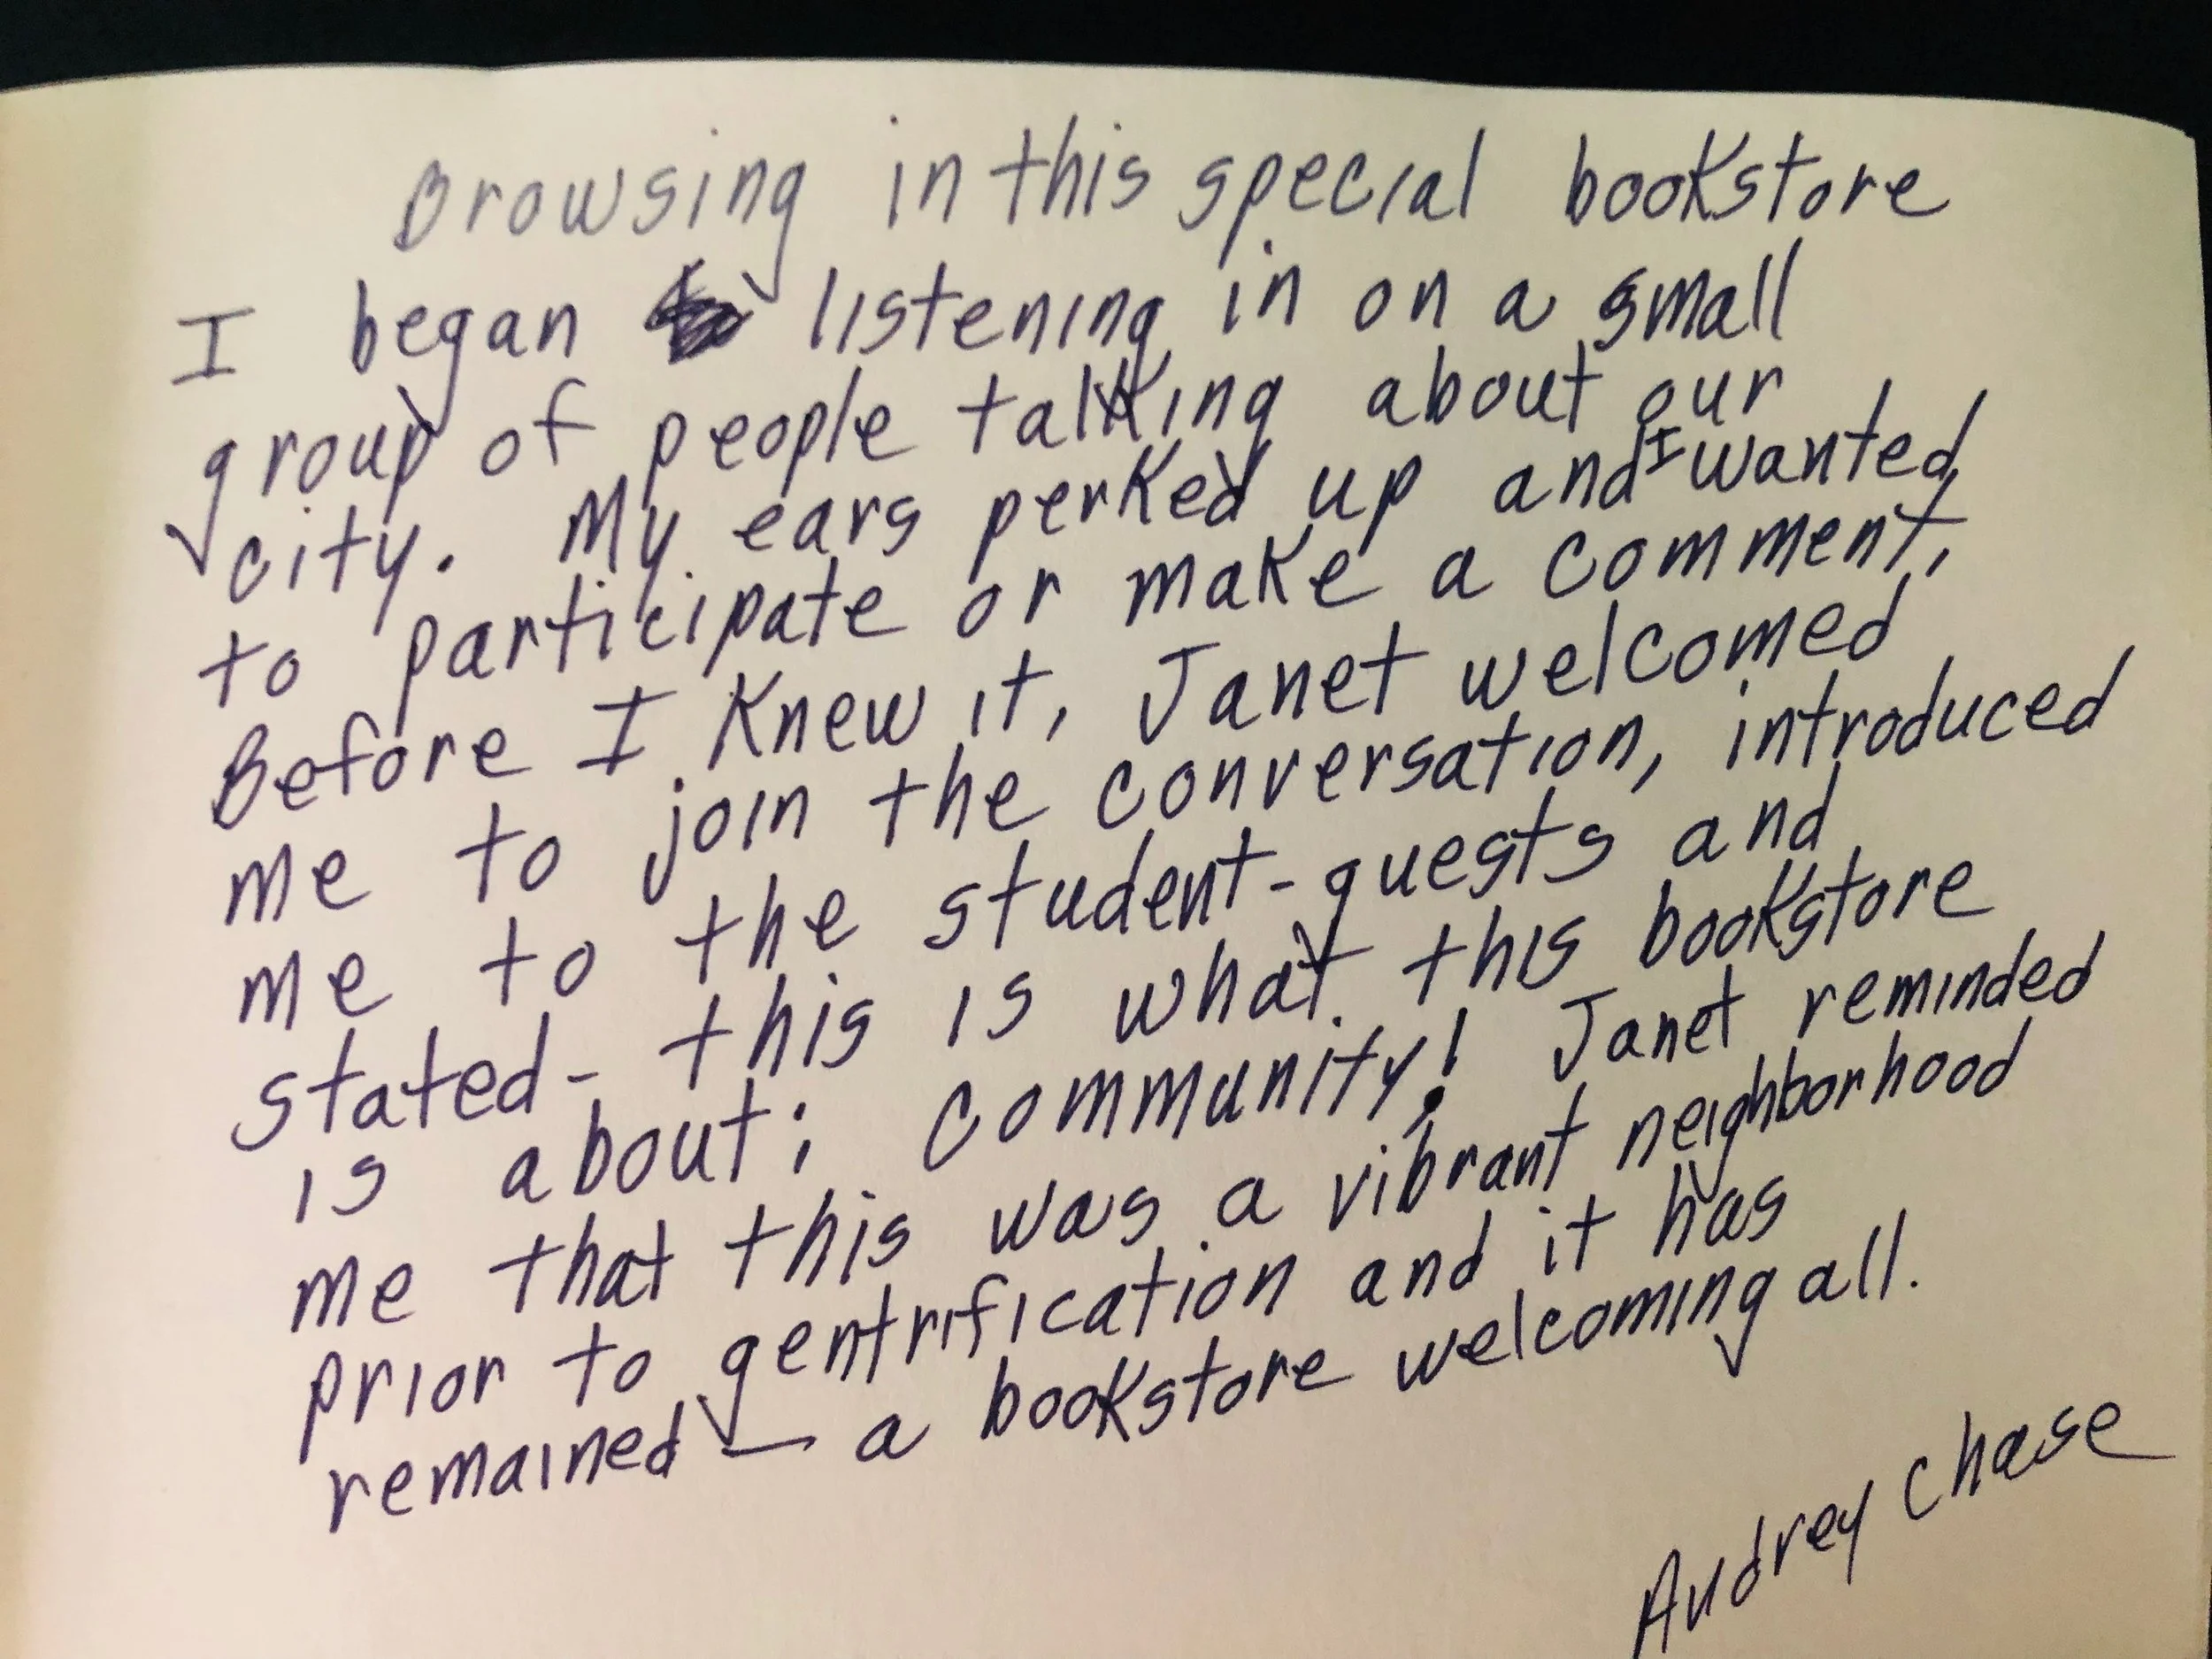 Browsing in this special bookstore
I began listening in on a small
group of people talking about our
city. My ears perked up and I wanted
to participate or make a comment,
Before I knew it, Janet welcomed
me to join the conversation, introduced
me to the student-guests and
stated- this is what this bookstore
is about; community! Janet reminded
me that this was a vibrant neighborhood
prior to gentrification and it has
remained — a bookstore welcoming all.
Audrey Chase